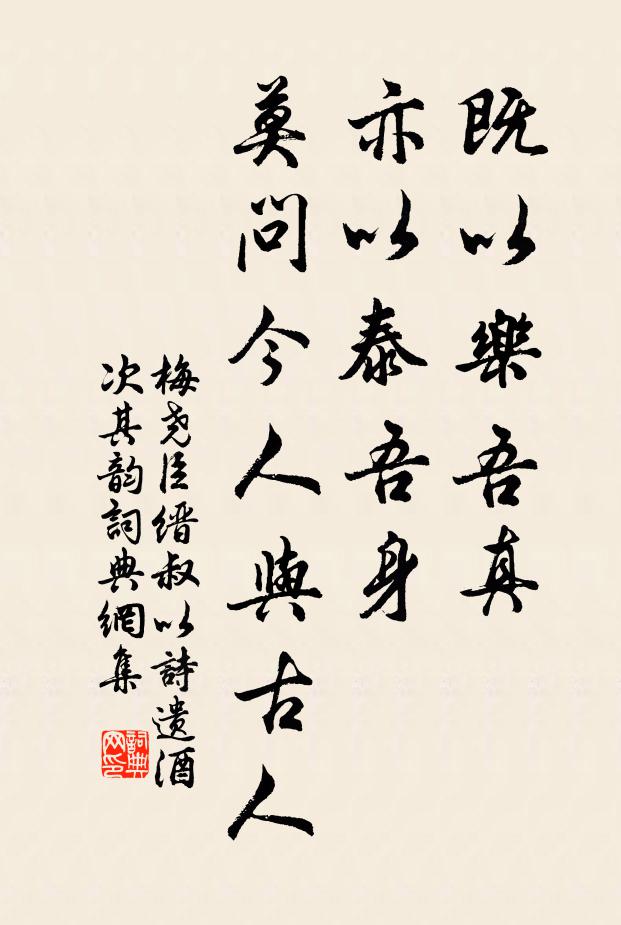 既以樂吾真
亦以泰吾身
莫問今人與古人
梅尧臣缙叔以詩遺酒
次其韵詞典網集
詞典
网印